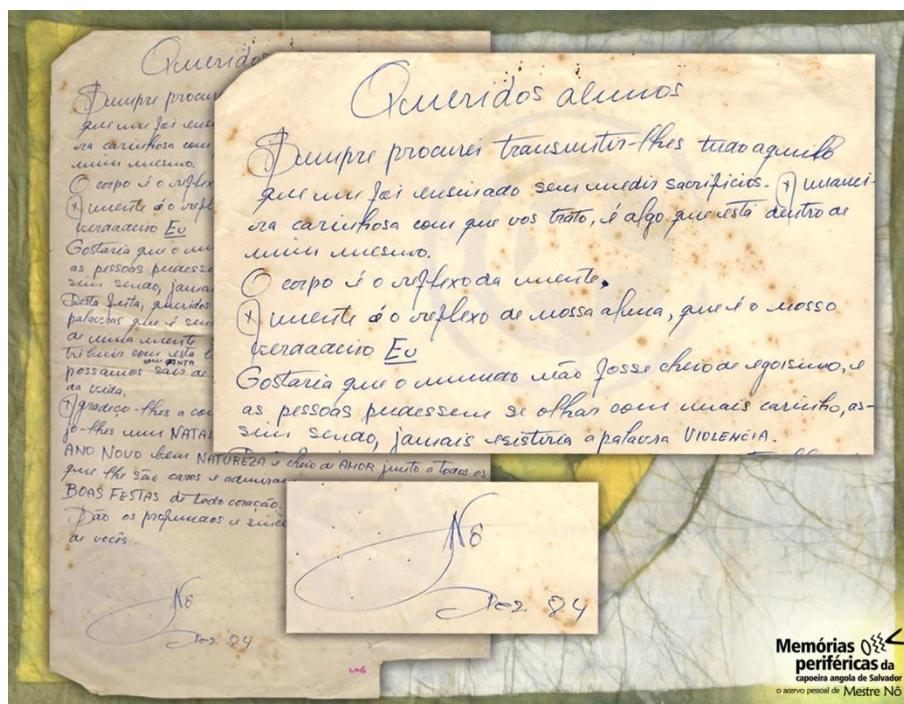 Queridos
Sempre procur
que me foi ensi
ra carinhosa com
mim mesmo.
O corpo é o reflex
A mente é o refl
verdadeiro Eu
Gostaria que o mu
as pessoas pudesse
sim sendo, jamais
Nesta festa, queridos
palavras que é
de minha mente
tribuir com esta
possamos sair de
da vida.
Agradeço-lhes a
jo-lhes um NATAL
ANO NOVO bem NATUREZA e cheio de AMOR junto a todos os
que lhe são caros e
BOAS FESTAS de todo coração.
São os profundos e
de vocês.
Nô
Dez 84
Queridos alunos
Sempre procurei transmitir-lhes tudo aquilo
que me foi ensinado sem medir sacrifícios. A manei-
ra carinhosa com que vos trato, é algo que está dentro de
mim mesmo.
O corpo é o reflexo da mente.
A mente é o reflexo de nossa alma, que é o nosso
verdadeiro Eu
Gostaria que o mundo não fosse cheio de egoísmo, e
as pessoas pudessem se olhar com mais carinho, as-
sim sendo, jamais existiria a palavra VIOLENCIA.
Nô
Dez 84
Memórias
periféricas da
capoeira angola de Salvador
o acervo pessoal de Mestre Nô